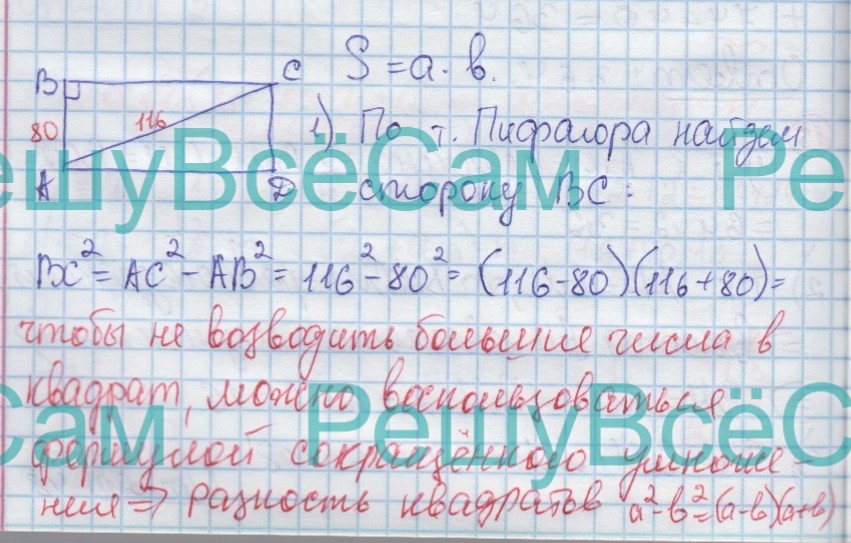 B
C
S = a · в.
80
116
1) По т. Пифагора найдем
A
D
сторону BC :
РешуВсёСам
Ре
BC² = AC² - AB² = 116² - 80² = (116-80)(116+80) =
чтобы не возводить большие числа в
квадрат, можно воспользоваться
формулой сокращённого умноже-
ния => разность квадратов a²-в²=(a-в)(a+в)
Сам
РешуВсёС